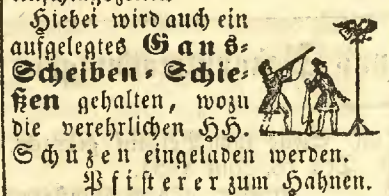 Hiebei wird auch ein
aufgelegtes Gans-
Scheiben-Schie-
ßen gehalten, wozu
die verehrlichen HH.
Schüzen eingeladen werden.
Pfisterer zum Hahnen.